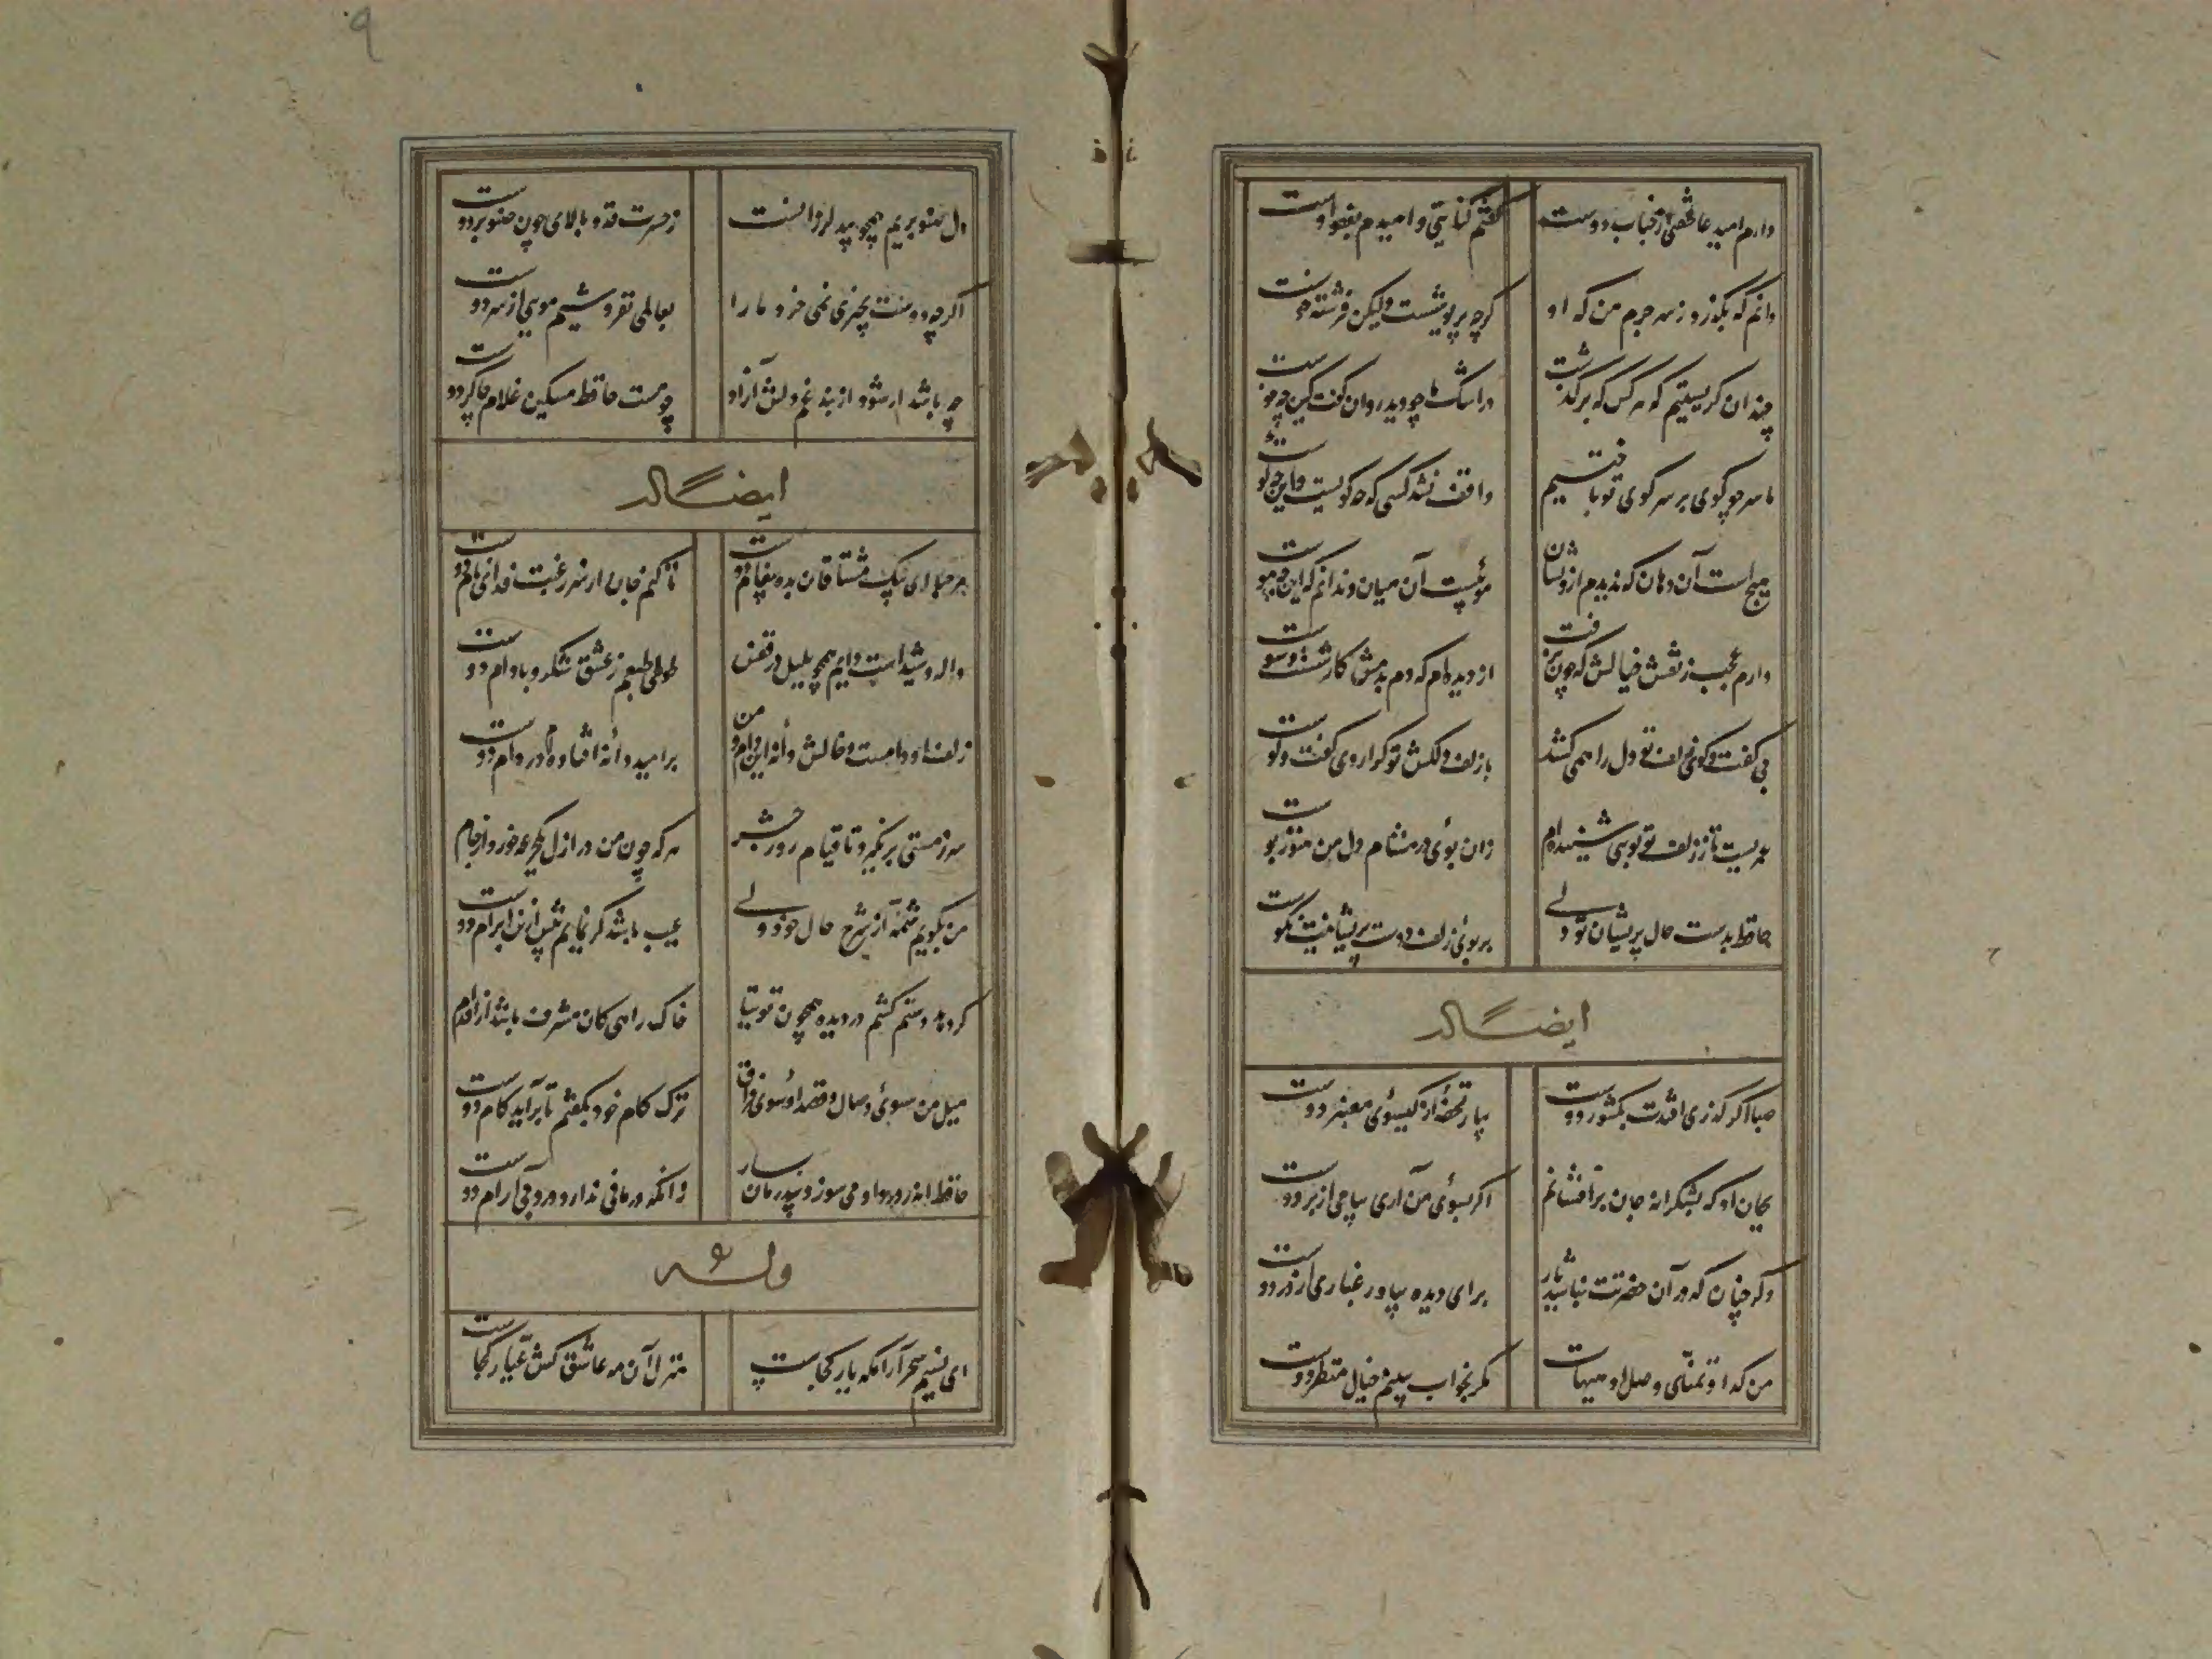 دارم امید عاطفتی از جناب دوست
گفتم کنایتی و امیدم بعفو اوست
دانم که بگذرد ز سر جرم من که او
گرچه پریوشست ولیکن فرشته خوست
چندان گریستیم که هر کس که برگذشت
در اشک ما چو دید روان گفت کین چه جوست
ما سر چو گوی بر سر کوی تو باختیم
واقف نشد کسی که چه کویست و این چه گوست
هیچ است آن دهان که ندیدم ازو نشان
موئیست آن میان و ندانم که این چه موست
دارم عجب ز نقش خیالش که چون نرفت
از دیده‌ام که دم بدمش کار شست و شوست
بی گفت و گوی زلف تو دل را همی کشد
با زلف دلکش تو کرا روی گفت و گوست
عمریست تا ز زلف تو بوی شنیده‌ام
زان بوی در مشام دل من هنوز بوست
حافظ بدست حال پریشان تو ولی
بر بوی زلف دوست پریشانیت نکوست
ایضاً له
صبا اگر گذری افتدت بکشور دوست
بیار تحفه از گیسوی معنبر دوست
بجان او که بشکرانه جان برافشانم
اگر بسوی من آری پیامی از بر دوست
وگر چنان که در آن حضرتت نباشد بار
برای دیده بیاور غباری از در دوست
من گدا و تمنای وصل او هیهات
مگر بخواب ببینم خیال منظر دوست
۹
دل صنوبریم همچو بید لرزانست
ز حسرت قد و بالای چون صنوبر دوست
اگرچه دوست بچیزی نمی خرد ما را
بعالمی نفروشیم مویی از سر دوست
چه باشد ار شود از بند غم دلش آزاد
چو هست حافظ مسکین غلام چاکر دوست
ایضاً له
مرحبا ای پیک مشتاقان بده پیغام دوست
تا کنم جان از سر رغبت فدای نام دوست
واله و شیداست دایم همچو بلبل در قفس
طوطی طبعم ز عشق شکر و بادام دوست
زلف او دامست و خالش دانه این دام و من
بر امید دانه افتاده‌ام در دام دوست
سر ز مستی برنگیرد تا قیام روز حشر
هر که چون من در ازل یکجرعه خورد از جام
من بگویم شمه از شرح حال خود ولی
عیب باشد گر نمایم بیش ازین ابرام دوست
گر دهد دستم کشم در دیده همچون توتیا
خاک راهی کان مشرف باشد از اقدام
میل من سوی وصال و قصد او سوی فراق
ترک کام خود بگفتم تا برآید کام دوست
حافظ اندر درد او می سوز و بیدرمان بساز
زانکه درمانی ندارد درد بی آرام دوست
وله
ای نسیم سحر آرامگه یار کجاست
منزل آن مه عاشق کش عیار کجاست